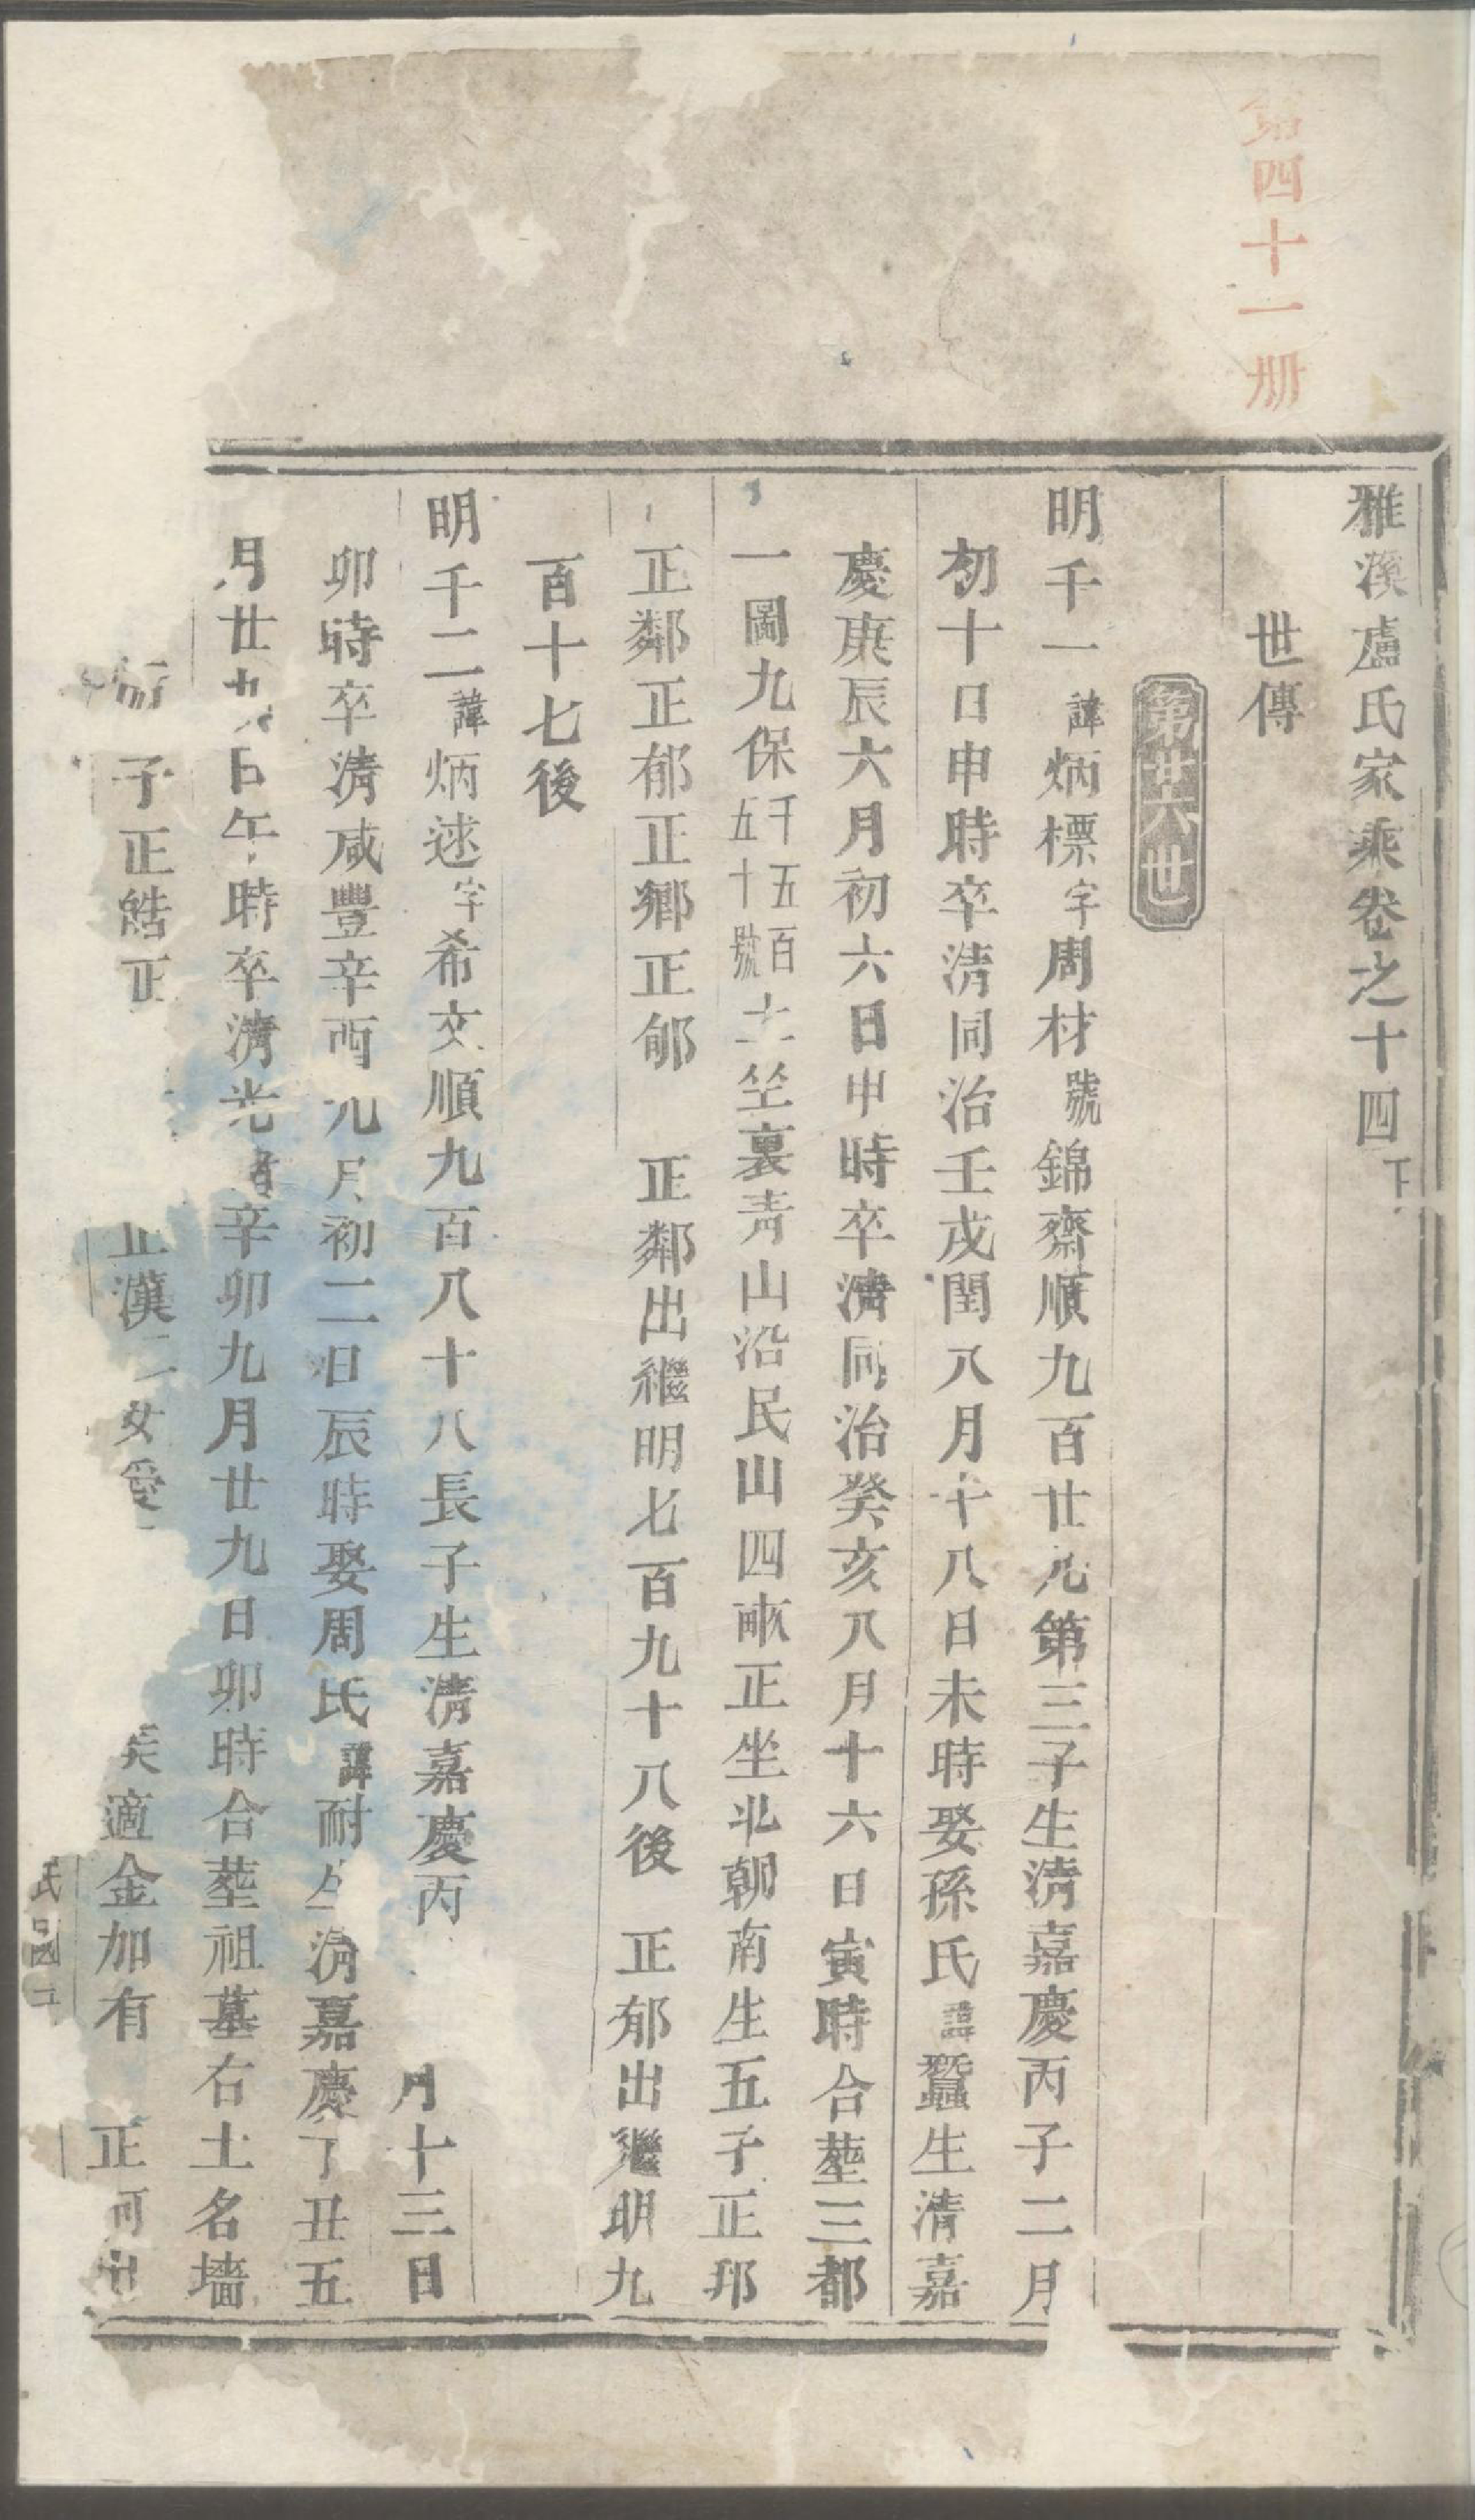 第四十一册
雅溪盧氏家乘卷之十四下
世傳
第廿六世
明千一諱炳標字周材號錦齋順九百廿九第三子生清嘉慶丙子二月
初十日申時卒清同治壬戌閏八月十八日未時娶孫氏諱蠶生清嘉
慶庚辰六月初六日申時卒清同治癸亥八月十六日寅時合塟三都
一圖九保千五百五十號土坐裏青山沿民山四畝正坐北朝南生五子正邦
正鄰正郁正鄉正郇 正鄰出繼明七百九十八後 正郁出繼明九
百十七後
明千二諱炳逑字希文順九百八十八長子生清嘉慶丙 月十三日
卯時卒清咸豐辛酉九月初二日辰時娶周氏諱耐生清嘉慶丁丑五
月廿九日午時卒清光緒辛卯九月廿九日卯時合塟祖墓右土名墻
子正皓正 正漢二女愛 適金加有 正河出
民國